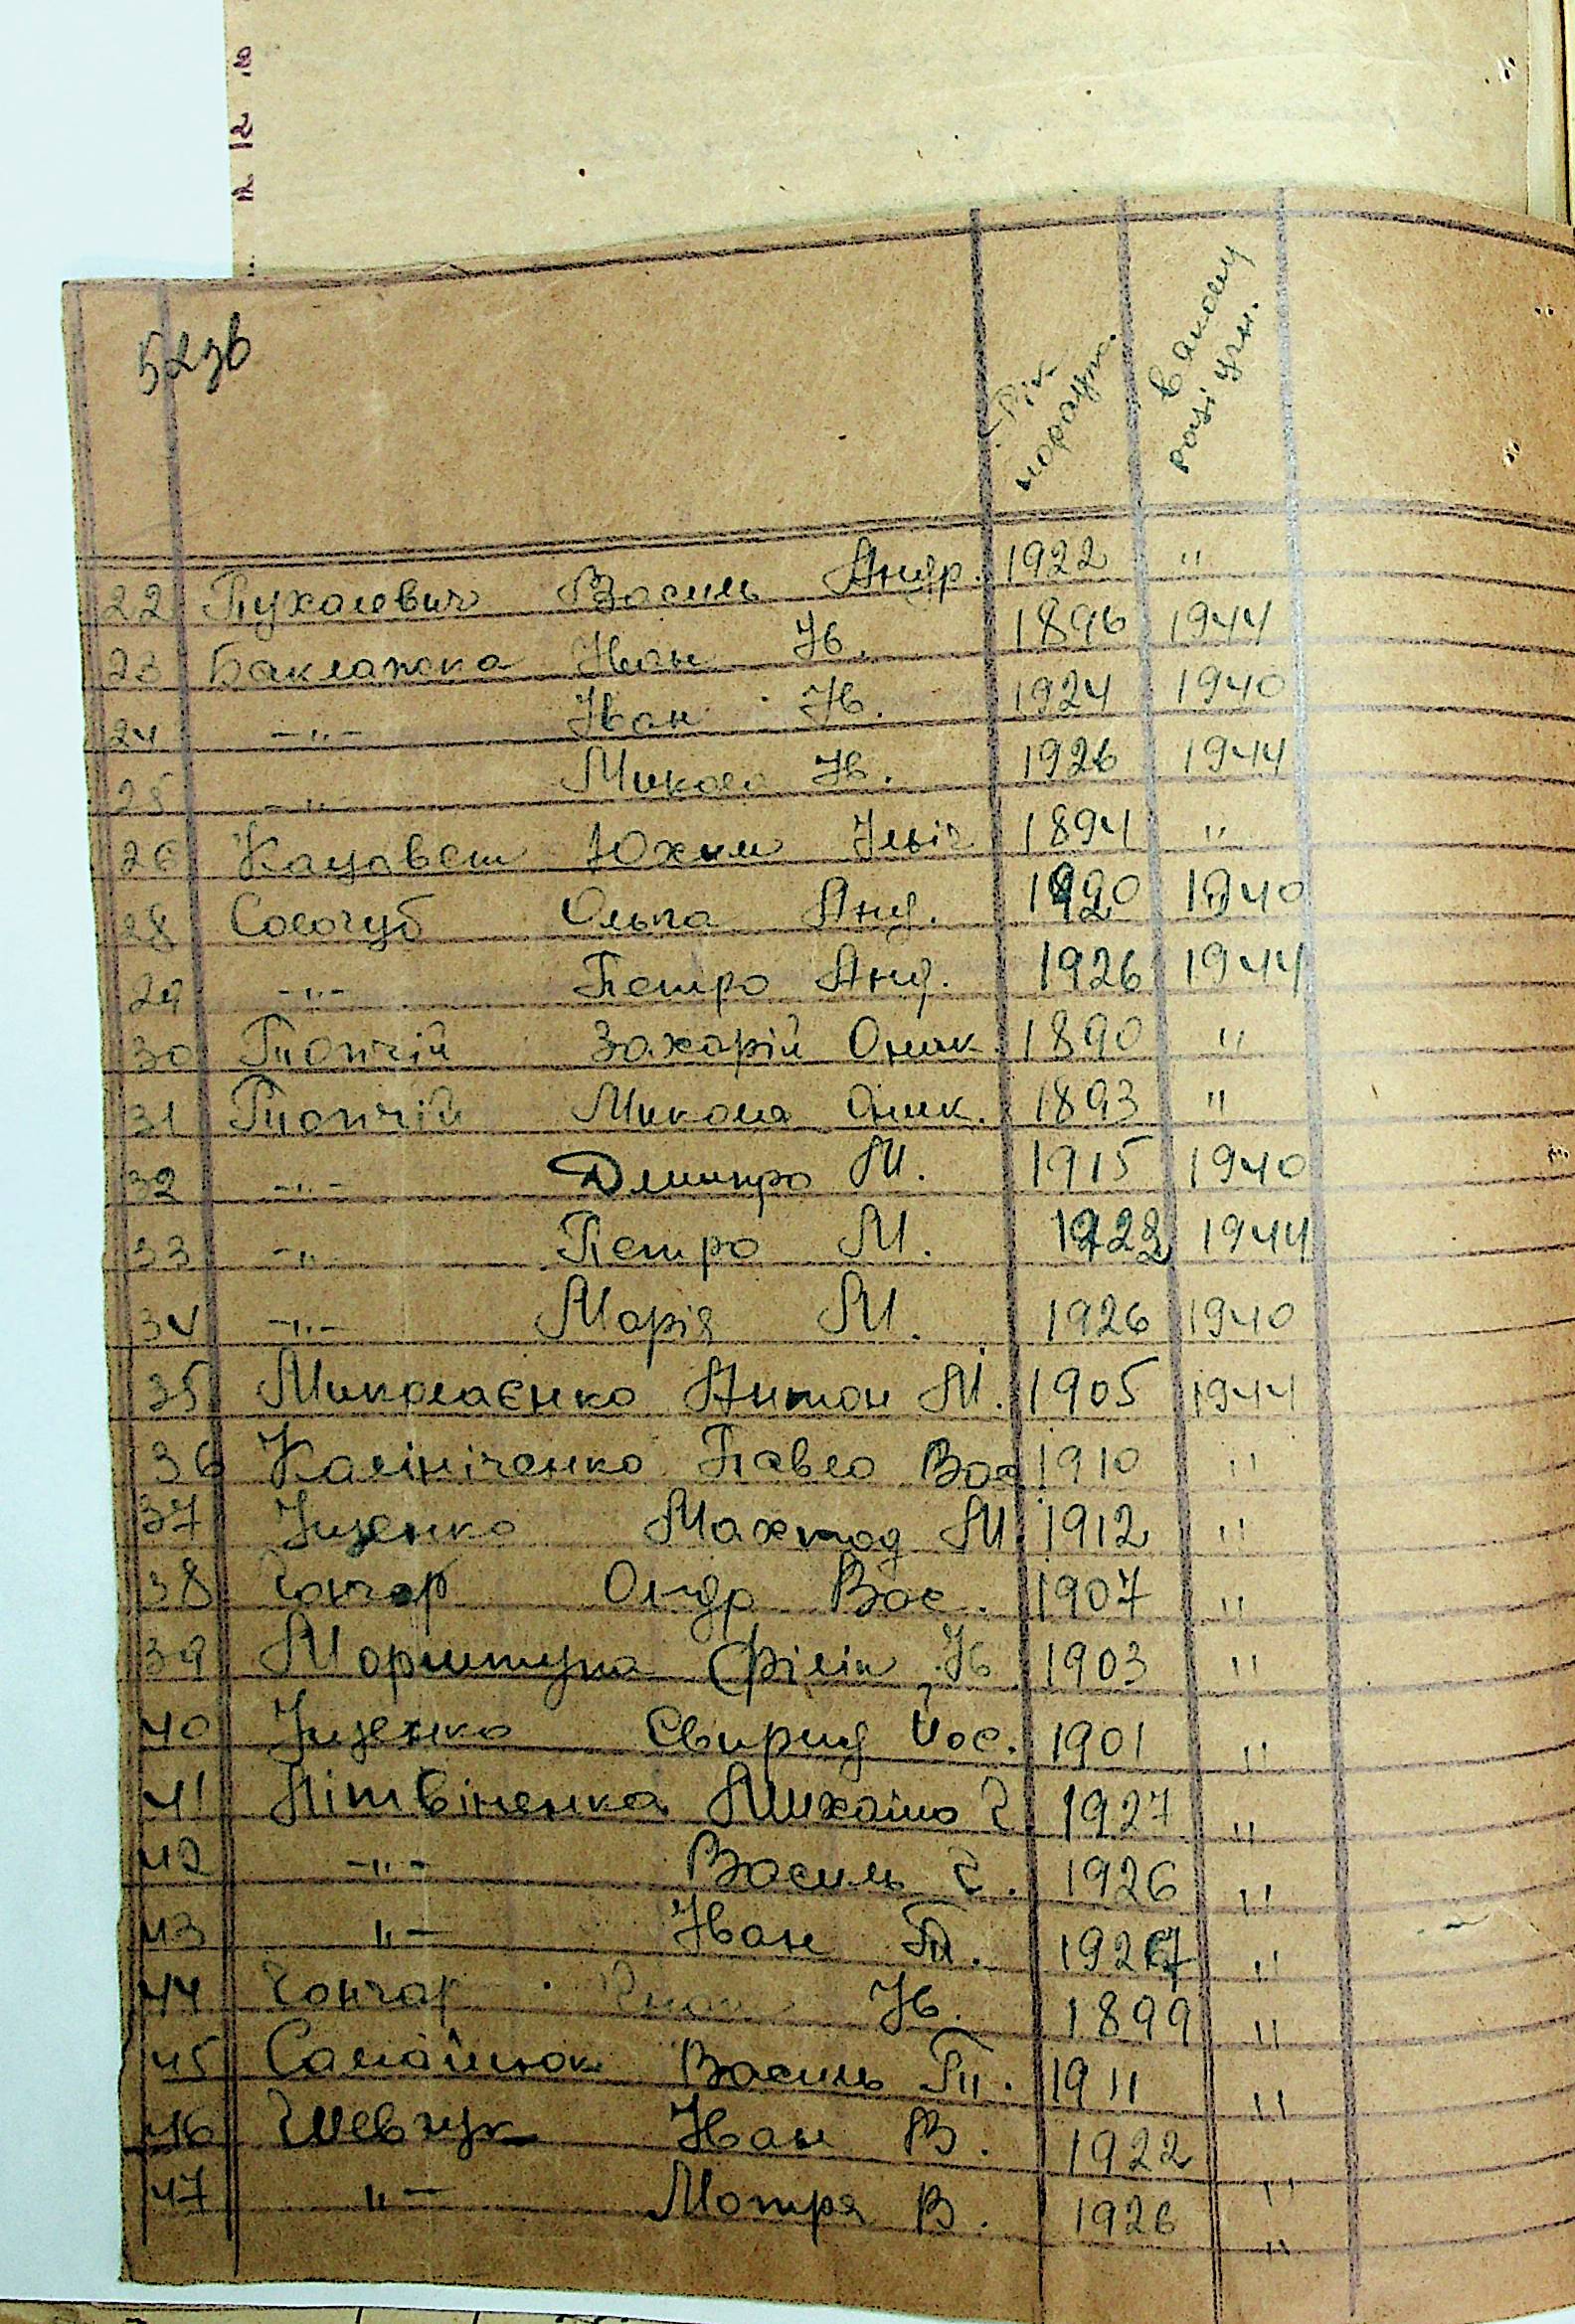 52зв
Рік народжен.
В якому році учн.
22 Пухалевич Василь Андр. 1922 "
23 Баклажка Іван Ів. 1896 1944
24 -"- Іван Ів. 1924 1940
25 -"- Микола Ів. 1926 1944
26 Юхим Ілліч 1894 "
28 Сологуб Ольга Анд. 1920 1940
29 -"- Петро Анд. 1926 1944
30 Захарій Оник. 1890 "
31 Микола Оник. 1893 "
32 -"- Дмитро М. 1915 1940
33 -"- Петро М. 1922 1944
34 -"- Марія М. 1926 1940
35 Миколаєнко Антон М. 1905 1944
36 Калініченко Павло Вас 1910 "
37 Іщенко М. 1912 "
38 Гончар Ондр Вас. 1907 "
39 Філіп Ів 1903 "
40 Іщенко Свирид Йос. 1901 "
41 Літвіненко Михайло Г. 1927 "
42 -"- Василь Г. 1926 "
43 "- Іван П. 1927 "
44 Гончар Ів. 1899 "
45 Самойлюк Василь П. 1911 "
46 Шевчук Іван В. 1922 "
47 "- Мотря В. 1926 "